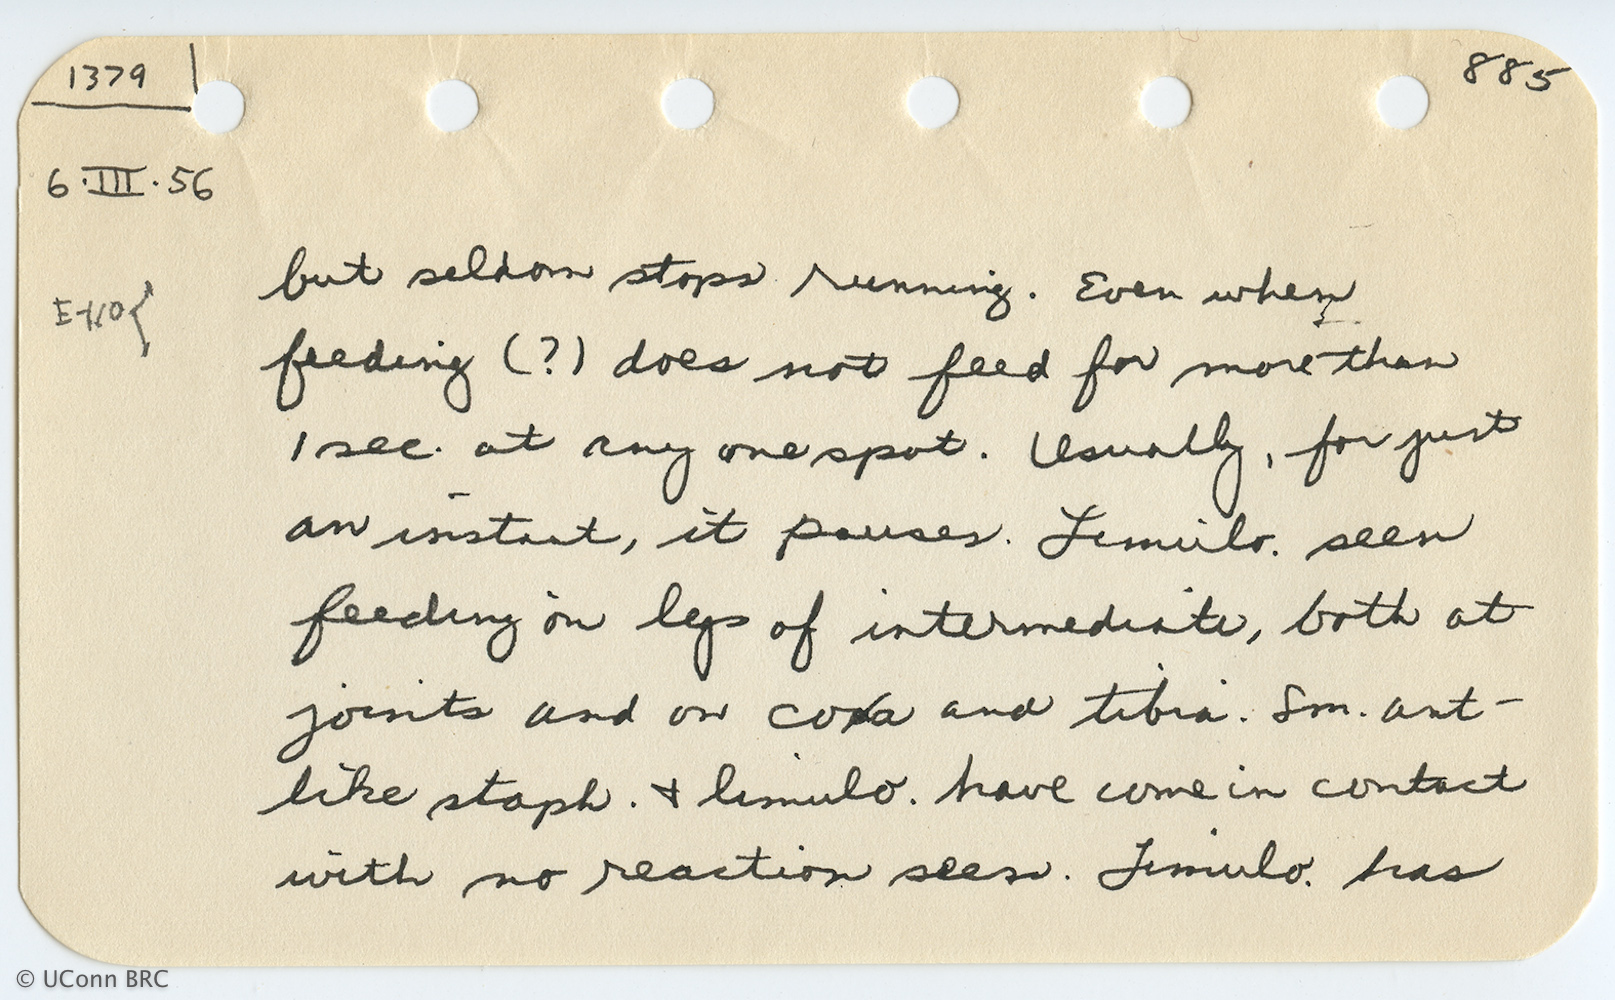 1379
885
6·III·56
but seldom stops running. Even when
feeding (?) does not feed for more than
1 sec. at any one spot. Usually, for just
an instant, it pauses. Limulo. seen
feeding on legs of intermediate, both at
joints and on coxa and tibia. Sm. ant-
like staph. & limulo. have come in contact
with no reaction seen. Limulo. has
© UConn BRC